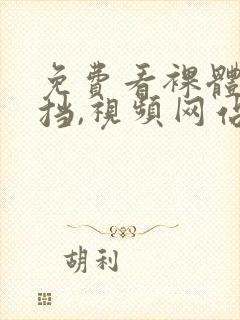 免費看裸體
挡,視頻网站
胡利